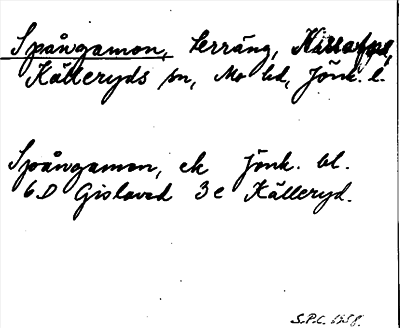 Spångamon, terräng,
Källeryds sn, Mo hd, Jönk. l.
Spångamon, ek Jönk. bl.
6D Gislaved 3e Källeryd.
S.P.C. 1958.